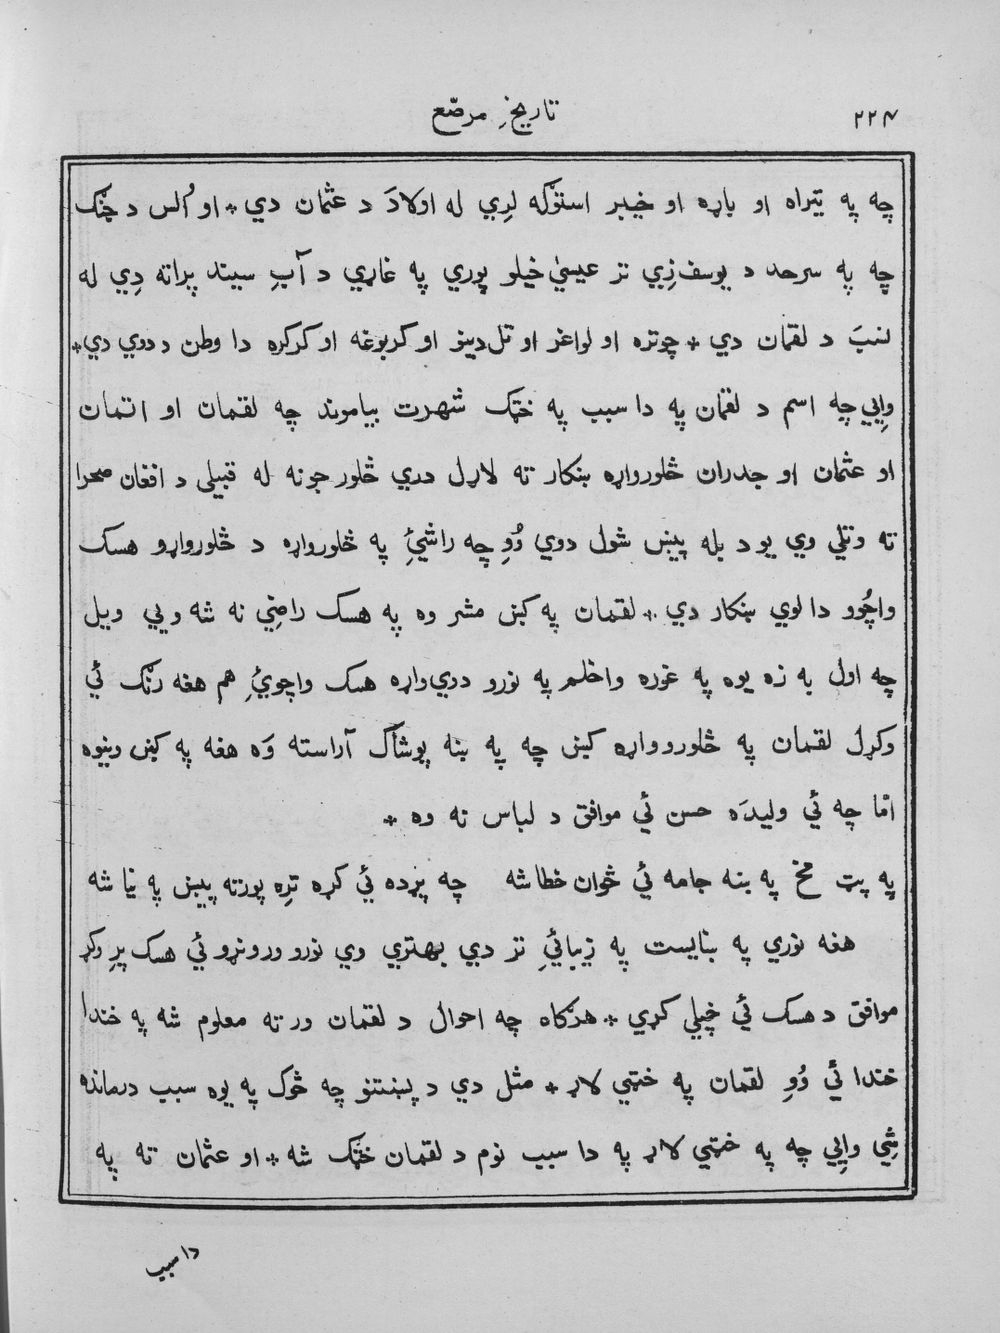 ۲۲۴ تاریخِ مرصّع
چه په تیراه او باړه او خیبر استوګه لرِي له اولادَ د عثمان دي * او اُلس د چټک
چه په سرحد د یوسف‌زِي تر عیسیٰ خیلو پورِي په غاړي د آبِ سیند پراته دِي له
نسَبَ د لقمان دي * چوتره او لواغر او تل‌دینو او کربوغه او کرکره دا وطن د دوي دي *
وایِي چه اسم د لقمان په دا سبب په خټک شهرت بیاموند چه لقمان او اتمان
او عثمان او جدران څلورواړه ښکار ته لاړل دري څلور جونه له قبیلې د افغان صحرا
ته وتلي وي یو د بله پېښ شول دوي وُوِ چه راشئِ په څلورواړه د څلورواړو هسک
واچُوو دا لوي ښکار دي * لقمان په کښ مشر وه په هسک راضِي نه شه ویي ویل
چه اول به زه یوه په غوره واخلم په نورو دري‌واړه هسک واچوئِ هم هغه رنګ ئي
وکړل لقمان په څلورو واړه کښ چه په ښه پوشاک آراسته وَه هغه په کښ ونیوه
امّا چه ئي ولیدَه حسن ئي موافق د لباس نه وه *
په پټ مخ په ښه جامه ئي ځوان خطا شه چه پرده ئي کړه ترِه پورته پېښ په نیا شه
هغه نورِي په ښایست په زیبائيِ تر دي بهترِي وي نورو ورونړو ئي هسک پرِ وکړ
موافق د هسک ئي خپلي کړي * هرګاه چه احوال د لقمان ورته معلوم شه په خندا
خندا ئي وُوِ لقمان په خټي لاړ * مثل دي د پښتنو چه څوک په یوه سبب درمانده
شِي وایِي چه په خټي لاړ په دا سبب نوم د لقمان خټک شه * او عثمان ته په
دا سبب